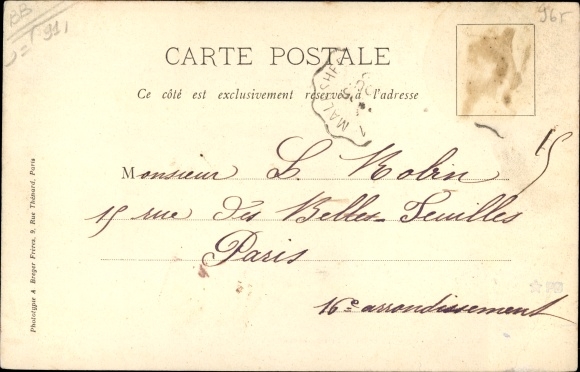 BB
96r
CARTE POSTALE
Ce côté est exclusivement réservé à l'adresse
MALESHE
15
Monsieur L. Robin
15 rue des Belles-Feuilles
Paris
16e arrondissement
Phototypie A Berger Frères, 9, Rue Thénard, Paris